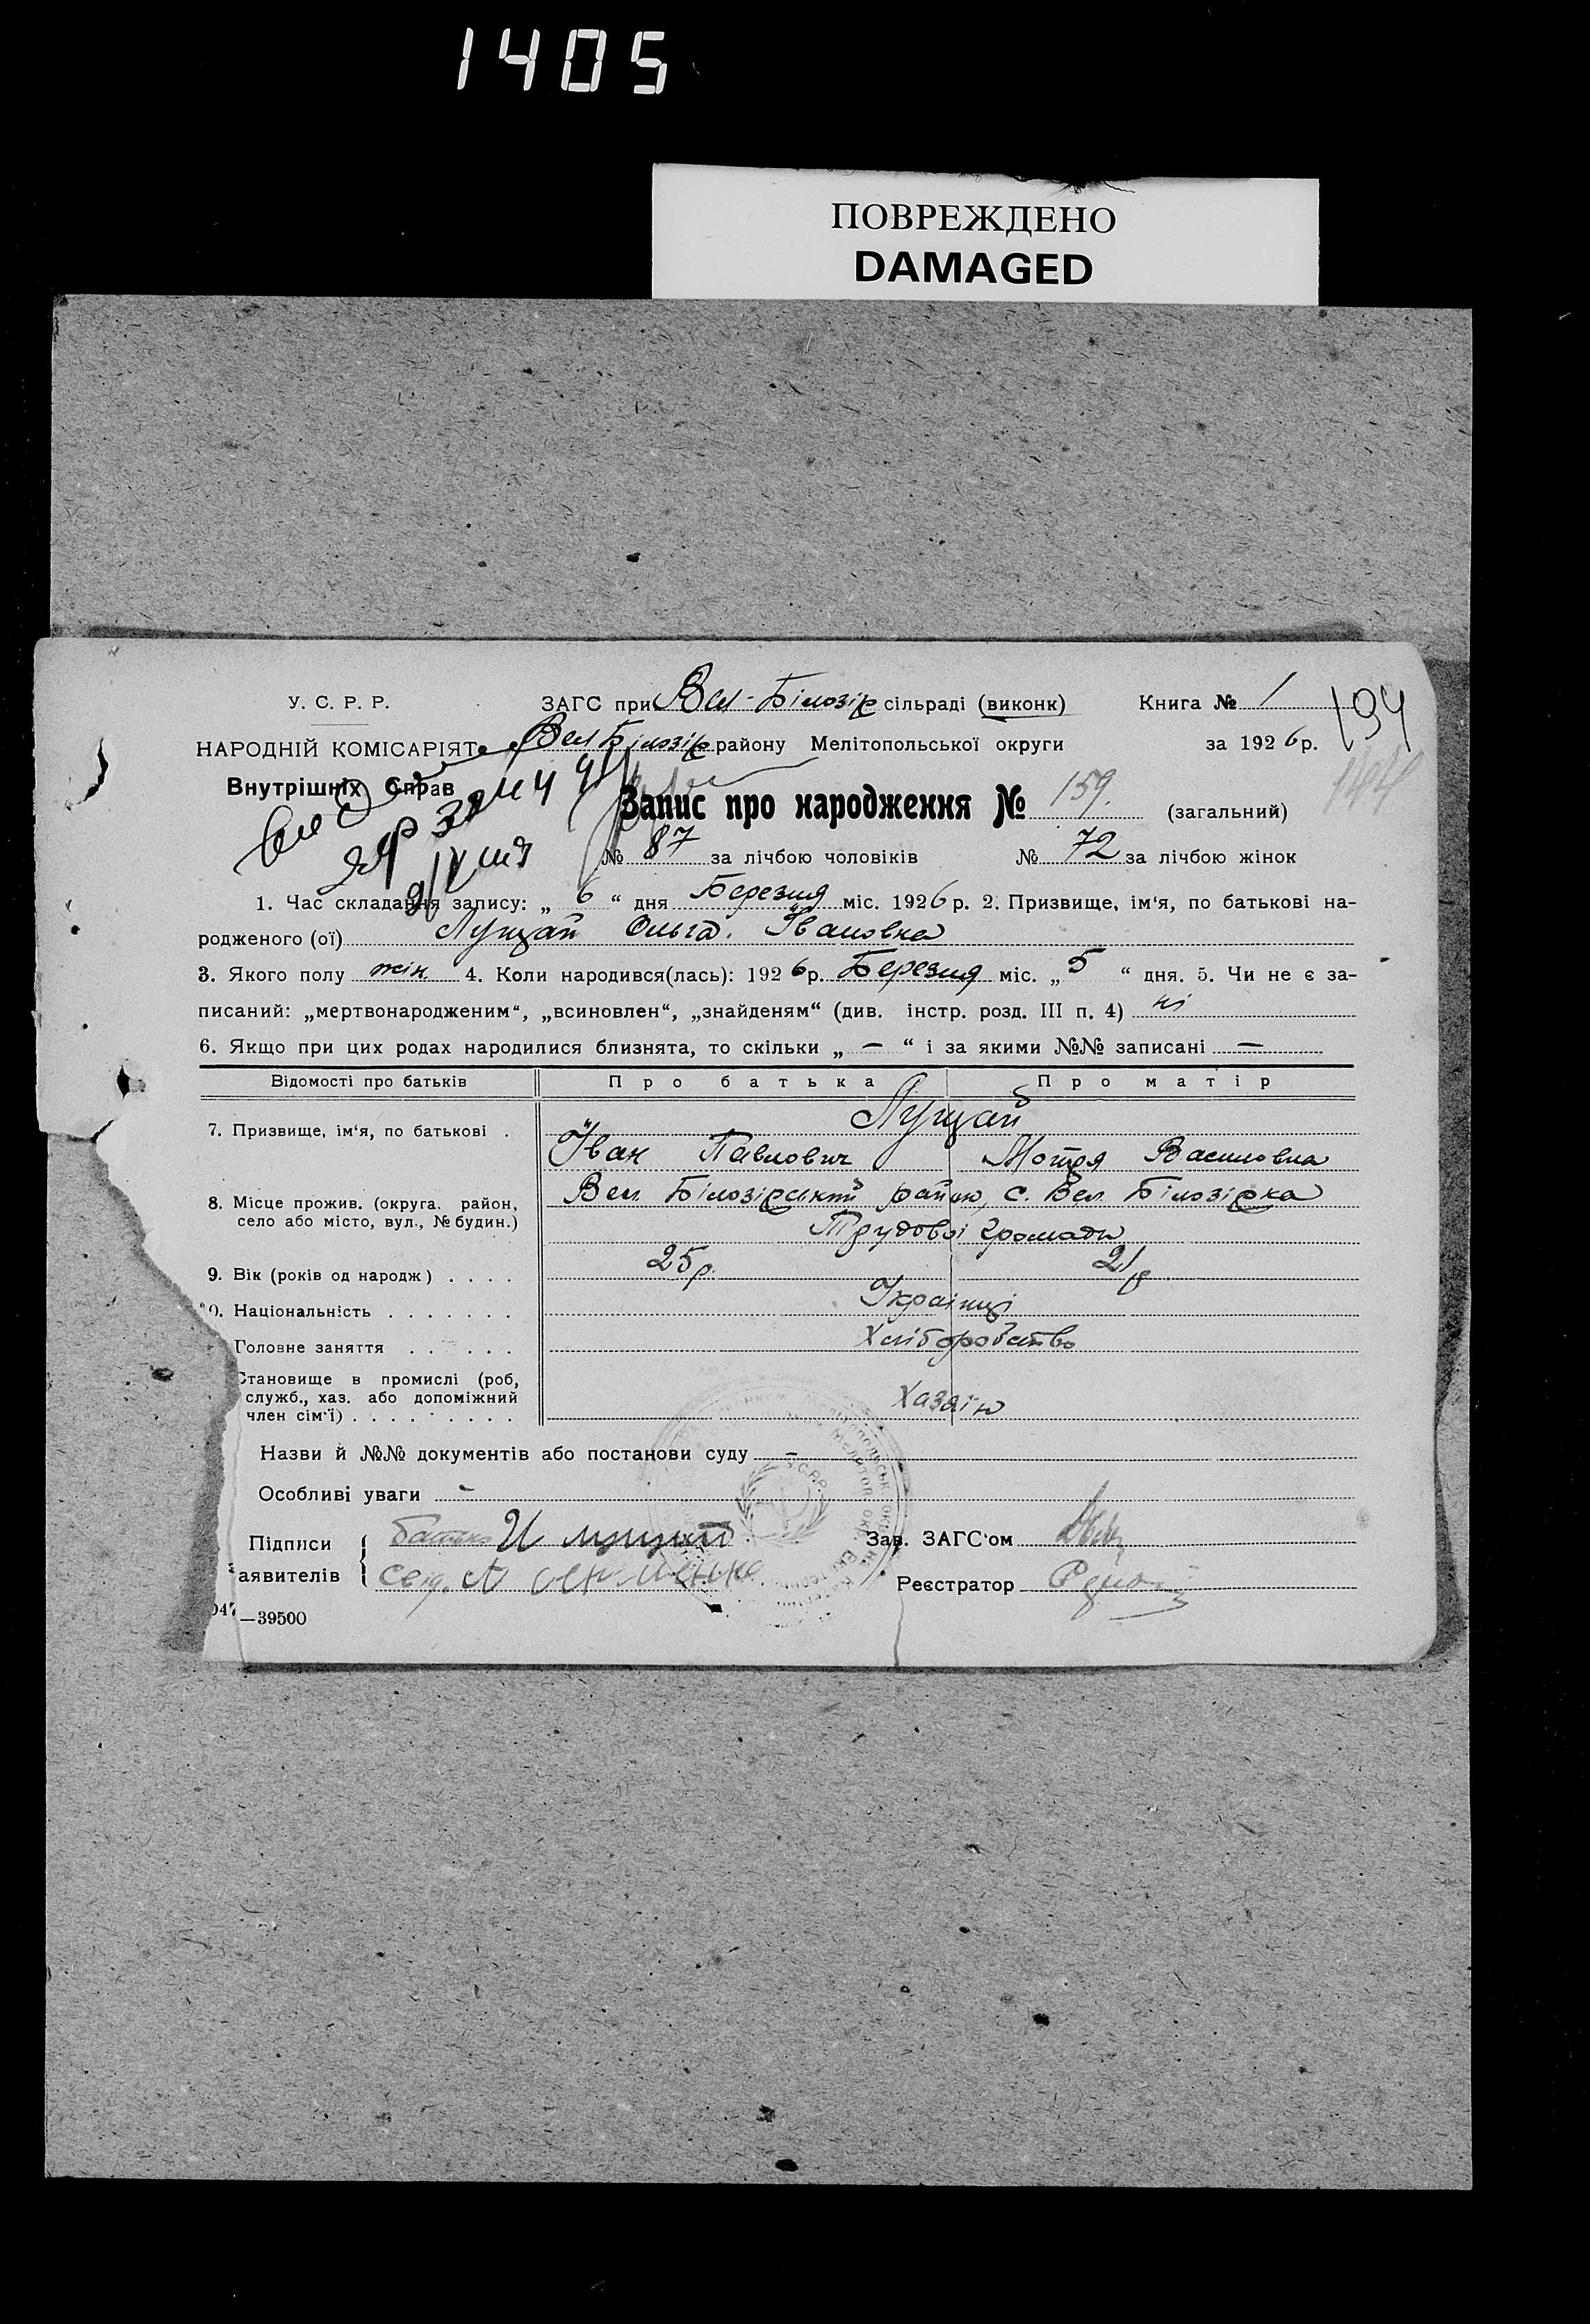 1405
ПОВРЕЖДЕНО
DAMAGED
У. С. Р. Р. ЗАГС при Вел-Білозір сільраді (виконк) Книга № 1 194
НАРОДНІЙ КОМІСАРІЯТ Вел Білозір району Мелітопольської округи за 1926 р.
Внутрішніх Справ
Запис про народження № 159. (загальний)
№ 87 за лічбою чоловіків № 72 за лічбою жінок
1. Час складання запису: „ 6 “ дня Березня міс. 1926 р. 2. Призвище, ім‘я, по батькові на-
родженого (ої) Лущай Ольга. Івановна
3. Якого полу жін 4. Коли народився(лась): 1926 р. Березня міс. „ 5 “ дня. 5. Чи не є за-
писаний: „мертвонародженим“, „всиновлен“, „знайденям“ (див. інстр. розд. III п. 4) ні
6. Якщо при цих родах народилися близнята, то скільки „ — “ і за якими №№ записані —
Відомості про батьків Про батька Про матір
Лущай
7. Призвище, ім‘я, по батькові . Іван Павлович Мотря Василовна
8. Місце прожив. (округа. район, Вел. Білозірський район, с. Вел. Білозірка
село або місто, вул., № будин.) Трудової громади
9. Вік (років од народж) . . . . 25 р.
0. Національність . . . . . . . Українці
Головне заняття . . . . . . Хліборобство
Становище в промислі (роб,
служб., хаз. або допоміжний
член сім‘ї) . . . . . . . . . Хазяїн
Назви й №№ документів або постанови суду —
Особливі уваги -
Підписи батько И Лущай Зав. ЗАГС‘ом
аявителів Реєстратор
047—39500